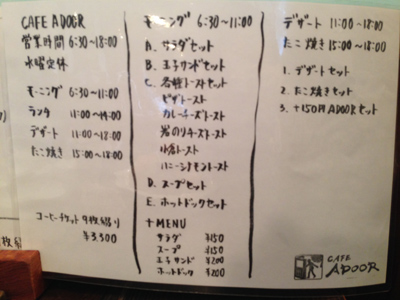 CAFE ADOOR
営業時間 6:30~18:00
水曜定休
モーニング 6:30~11:00
ランチ 11:00~14:00
デザート 11:00~18:00
たこ焼き 15:00~18:00
コーヒーチケット 9枚綴り
¥3,300
モーニング 6:30~11:00
A. サラダセット
B. 玉子サンドセット
C. 各種トーストセット
ピザトースト
カレーチーズトースト
岩のりチーズトースト
小倉トースト
ハニーシナモントースト
D. スープセット
E. ホットドックセット
+MENU
サラダ ¥150
スープ ¥150
玉子サンド ¥200
ホットドック ¥200
デザート 11:00~18:00
たこ焼き 15:00~18:00
1. デザートセット
2. たこ焼きセット
3. +150円ADOORセット
CAFE
ADOOR